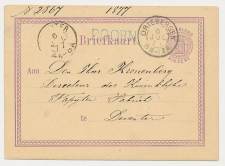 N 2867 1877
Briefkaart
DOORN
DRIEBERGEN
Aan Den Heer Kronenberg
Directeur der Koninklijke
Tapijt Fabriek
te Deventer